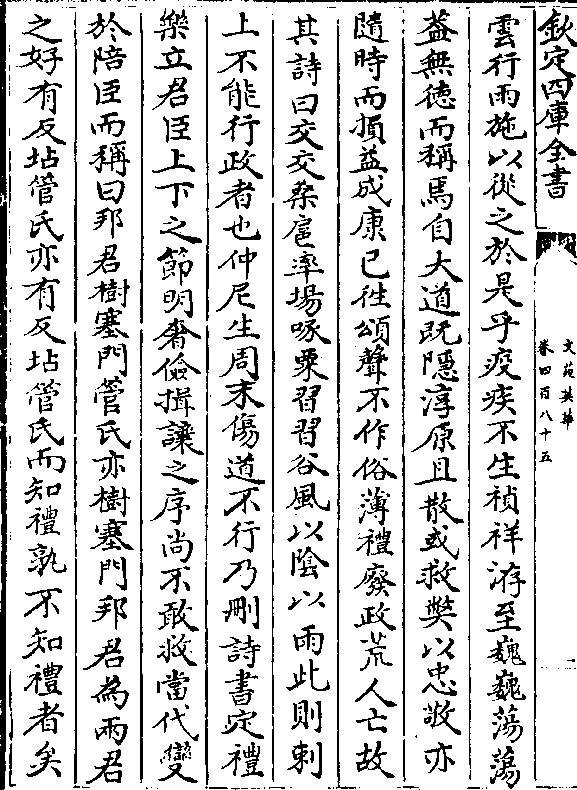 欽定四庫全書
文苑英華
卷四百八十五
雲行雨施以從之於是乎疫疾不生禎祥洊至巍巍蕩蕩
葢無徳而稱焉自大道既隱淳原且散或救獘以忠敬亦
隨時而損益成康已往頌聲不作俗薄禮廢政荒人亡故
其詩曰交交桑扈率場啄粟習習谷風以陰以雨此則刺
上不能行政者也仲尼生周末傷道不行乃刪詩書定禮
樂立君臣上下之節明奢儉揖讓之序尚不敢救當代變
於陪臣而稱曰邦君樹塞門管氏亦樹塞門邦君為兩君
之好有反坫管氏亦有反坫管氏而知禮孰不知禮者矣